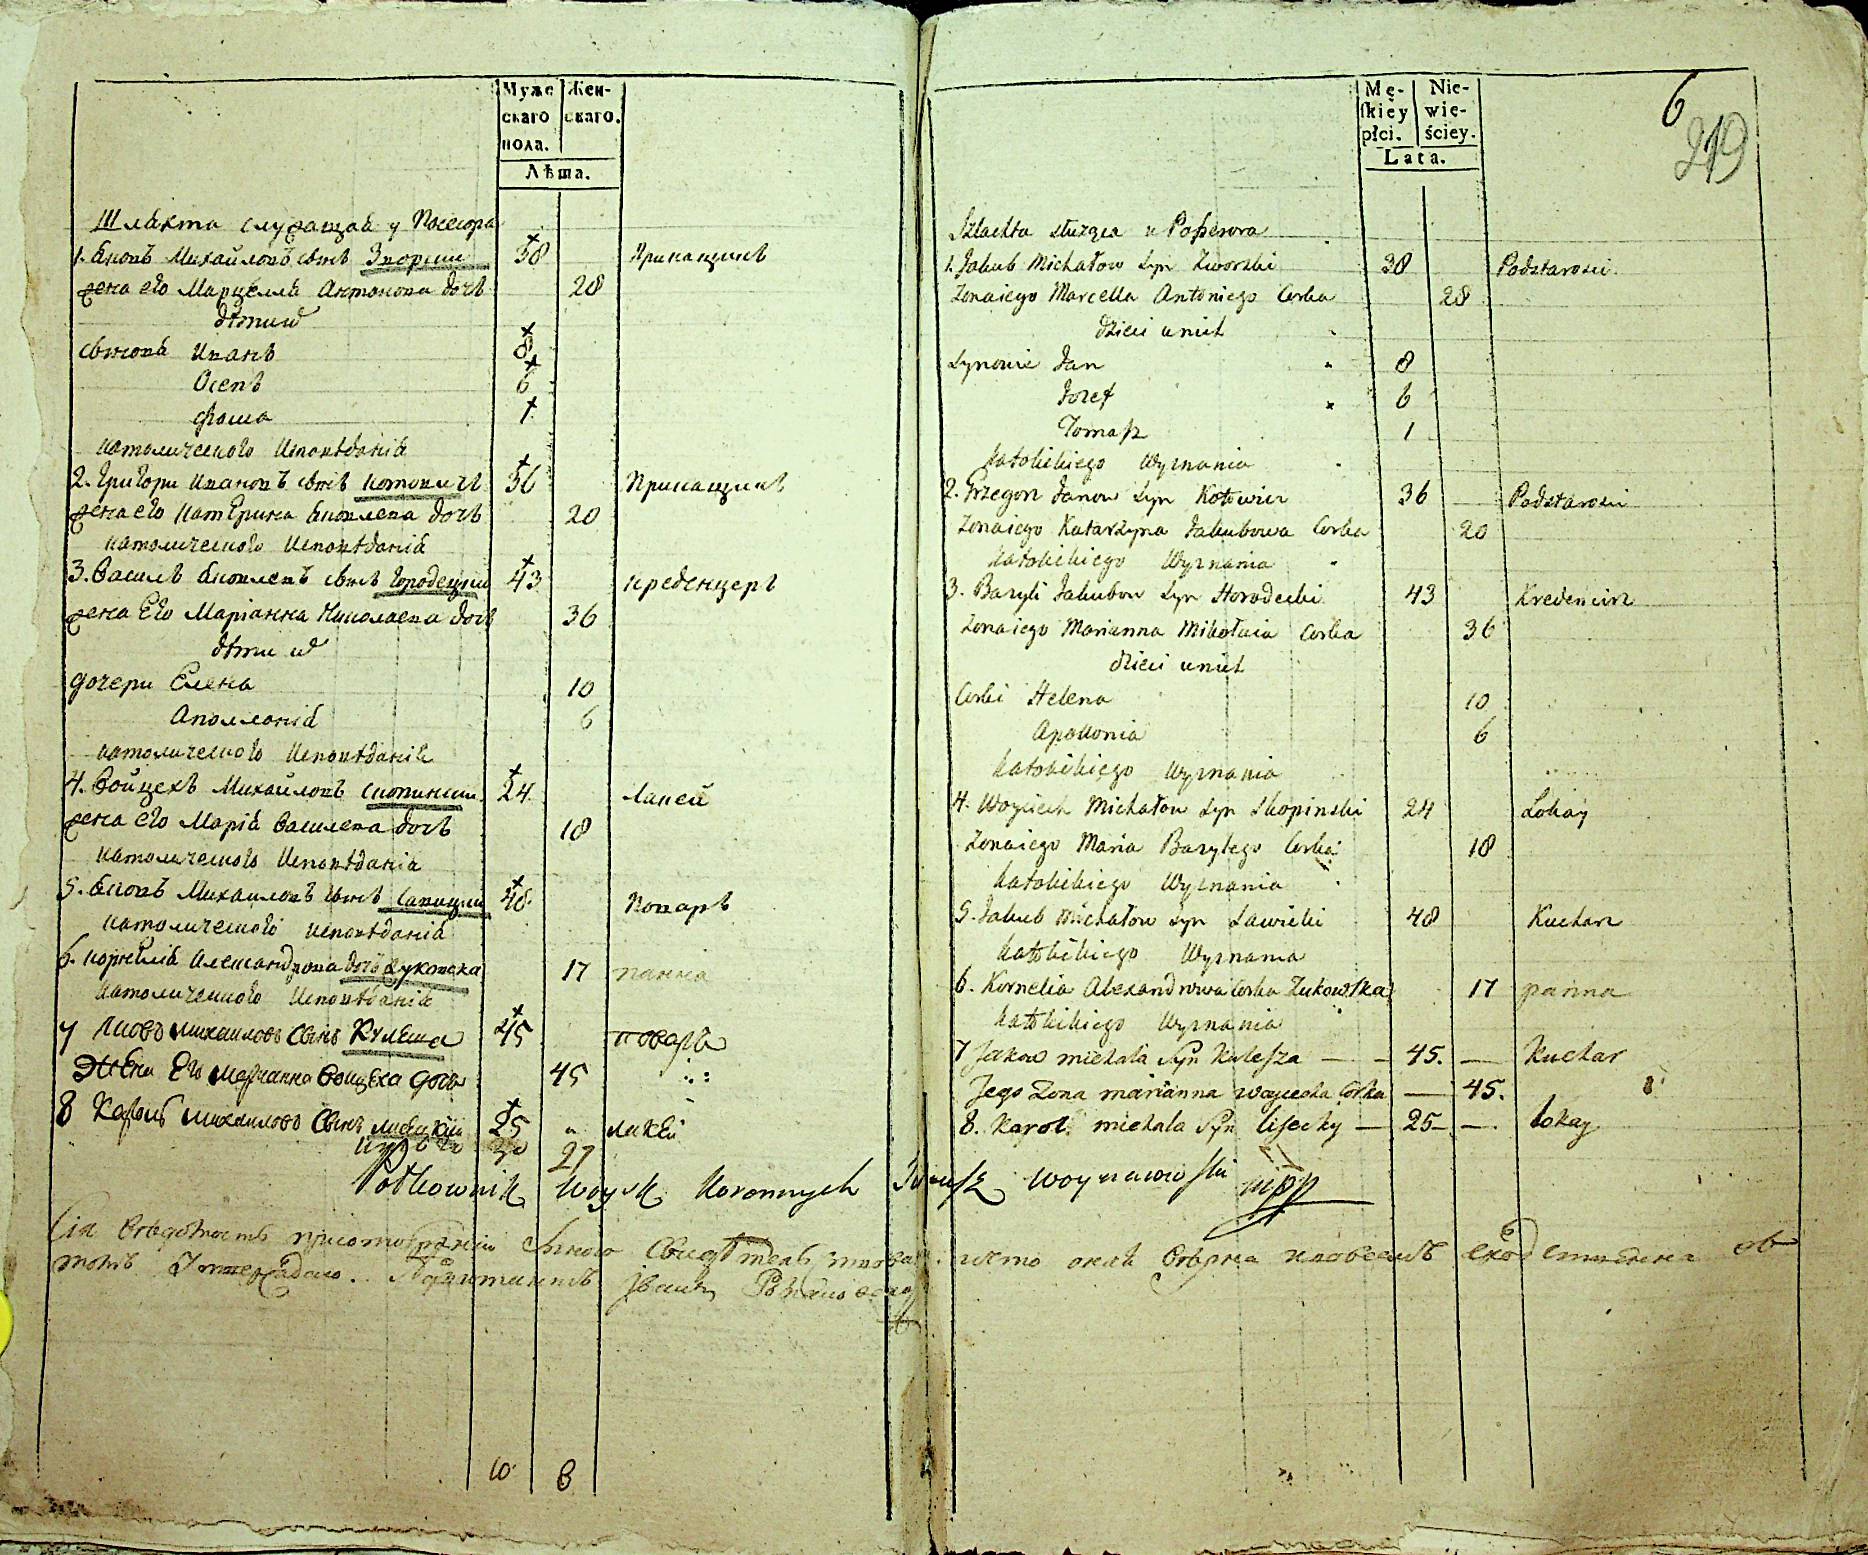 Муже
скаго
пола.
Жен-
скаго.
Лѣта.
Шляхта служащая у Посесора
1. Яковъ Михайловъ сынъ Зворски 38 Прикащикъ
жена его Марцелла Антонова дочь 28
дѣти ихъ
сыновя Иванъ 8
Осепъ 6
Фома 1
католического исповѣданія
2. Григори Ивановъ сынъ Котовичъ 36 Прикащикъ
жена его Катерина Яковлева дочь 20
католического исповѣданія
3. Василь Яковлевъ сынъ Городецки 43 креденцеръ
жена Его Маріанна Николаева дочь 36
дѣти их
дочери Елена 10
Аполлонія 6
католического исповѣданія
4. Войцехъ Михайловъ Скопински 24 Лакей
жена его Марія Василева дочь 18
католического исповѣданія
5. Яковъ Михаиловъ сынъ Савицки 48 Поваръ
католического исповѣданія
6. Корнелія Александрова дочь Жуковска 17 панна
католического исповѣданія
7 Яковъ михаиловъ сынъ Кулеша 45 поваръ
Жена Его Марианна Воицеха дочь 45
8 Кароль михаиловъ Сынъ лисецкий 25 „ лакей
30 27
Pułkownik Woysk Koronnych Woynarowski mpp
Сія вѣдомость
10 8
Mę-
skiey
płci.
Nie-
wie-
ściey.
Lata.
6
219
Szlachta służąca u Poſsesora
1. Jakub Michałow syn Zworski 38 Podstarosci
Zona iego Marcella Antoniego Corka 28
dzieci u nich
synowie Jan 8
Jozef 6
Tomaſz 1
katolickiego Wyznania
2. Grzegorz Janow Syn Kotowicz 36 Podstarosci
Zona iego Katarzyna Jakubowa Corka 20
katolickiego Wyznania
3. Bazyli Jakubow Syn Horodecki 43 Kredencirz
Zona iego Marianna Mikołaia Corka 36
dzieci u nich
Corki Helena 10
Apollonia 6
katolickiego Wyznania
4. Woyciech Michałow syn Skopinski 24 Lokay
Zona iego Maria Bazylego Corka 18
katolickiego Wyznania
5. Jakub Michałow syn Sawicki 48 Kucharz
katolickiego Wyznania
6. Kornelia Alexandrowa Corka Zukowſka 17 panna
katolickiego Wyznania
7 Jakow michala Syn Kuleſza — — 45. — Kuchar
Jego Zona marianna woyciecha Corka — 45.
8. Karol michala Syn liſecky — 25 — —. lokay